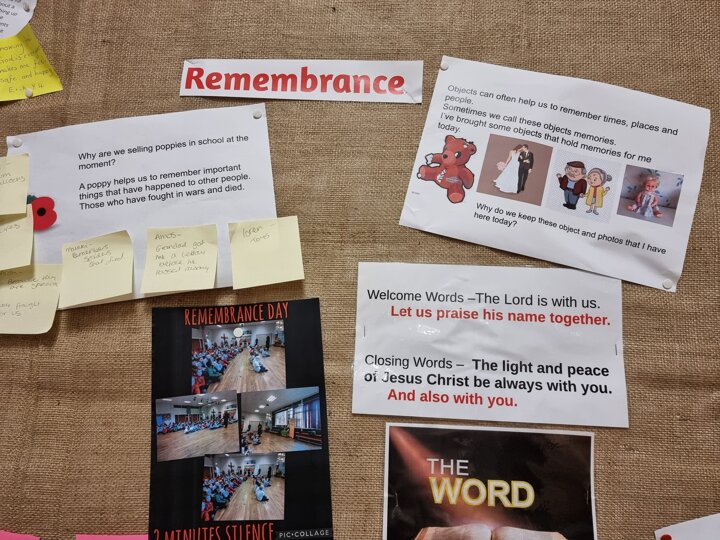 Remembrance
Why are we selling poppies in school at the
moment?
A poppy helps us to remember important
things that have happened to other people.
Those who have fought in wars and died.
Objects can often help us to remember times, places and
people.
Sometimes we call these objects memories.
I've brought some objects that hold memories for me
today.
Why do we keep these object and photos that I have
here today?
that died
Grandad got
me a
before he
passed away
Welcome Words –The Lord is with us.
Let us praise his name together.
Closing Words – The light and peace
of Jesus Christ be always with you.
And also with you.
REMEMBRANCE DAY
2 MINUTES SILENCE
PIC•COLLAGE
THE
WORD